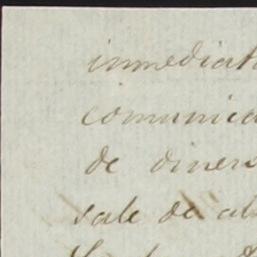 inmediat
comunica
de diners
sale de al